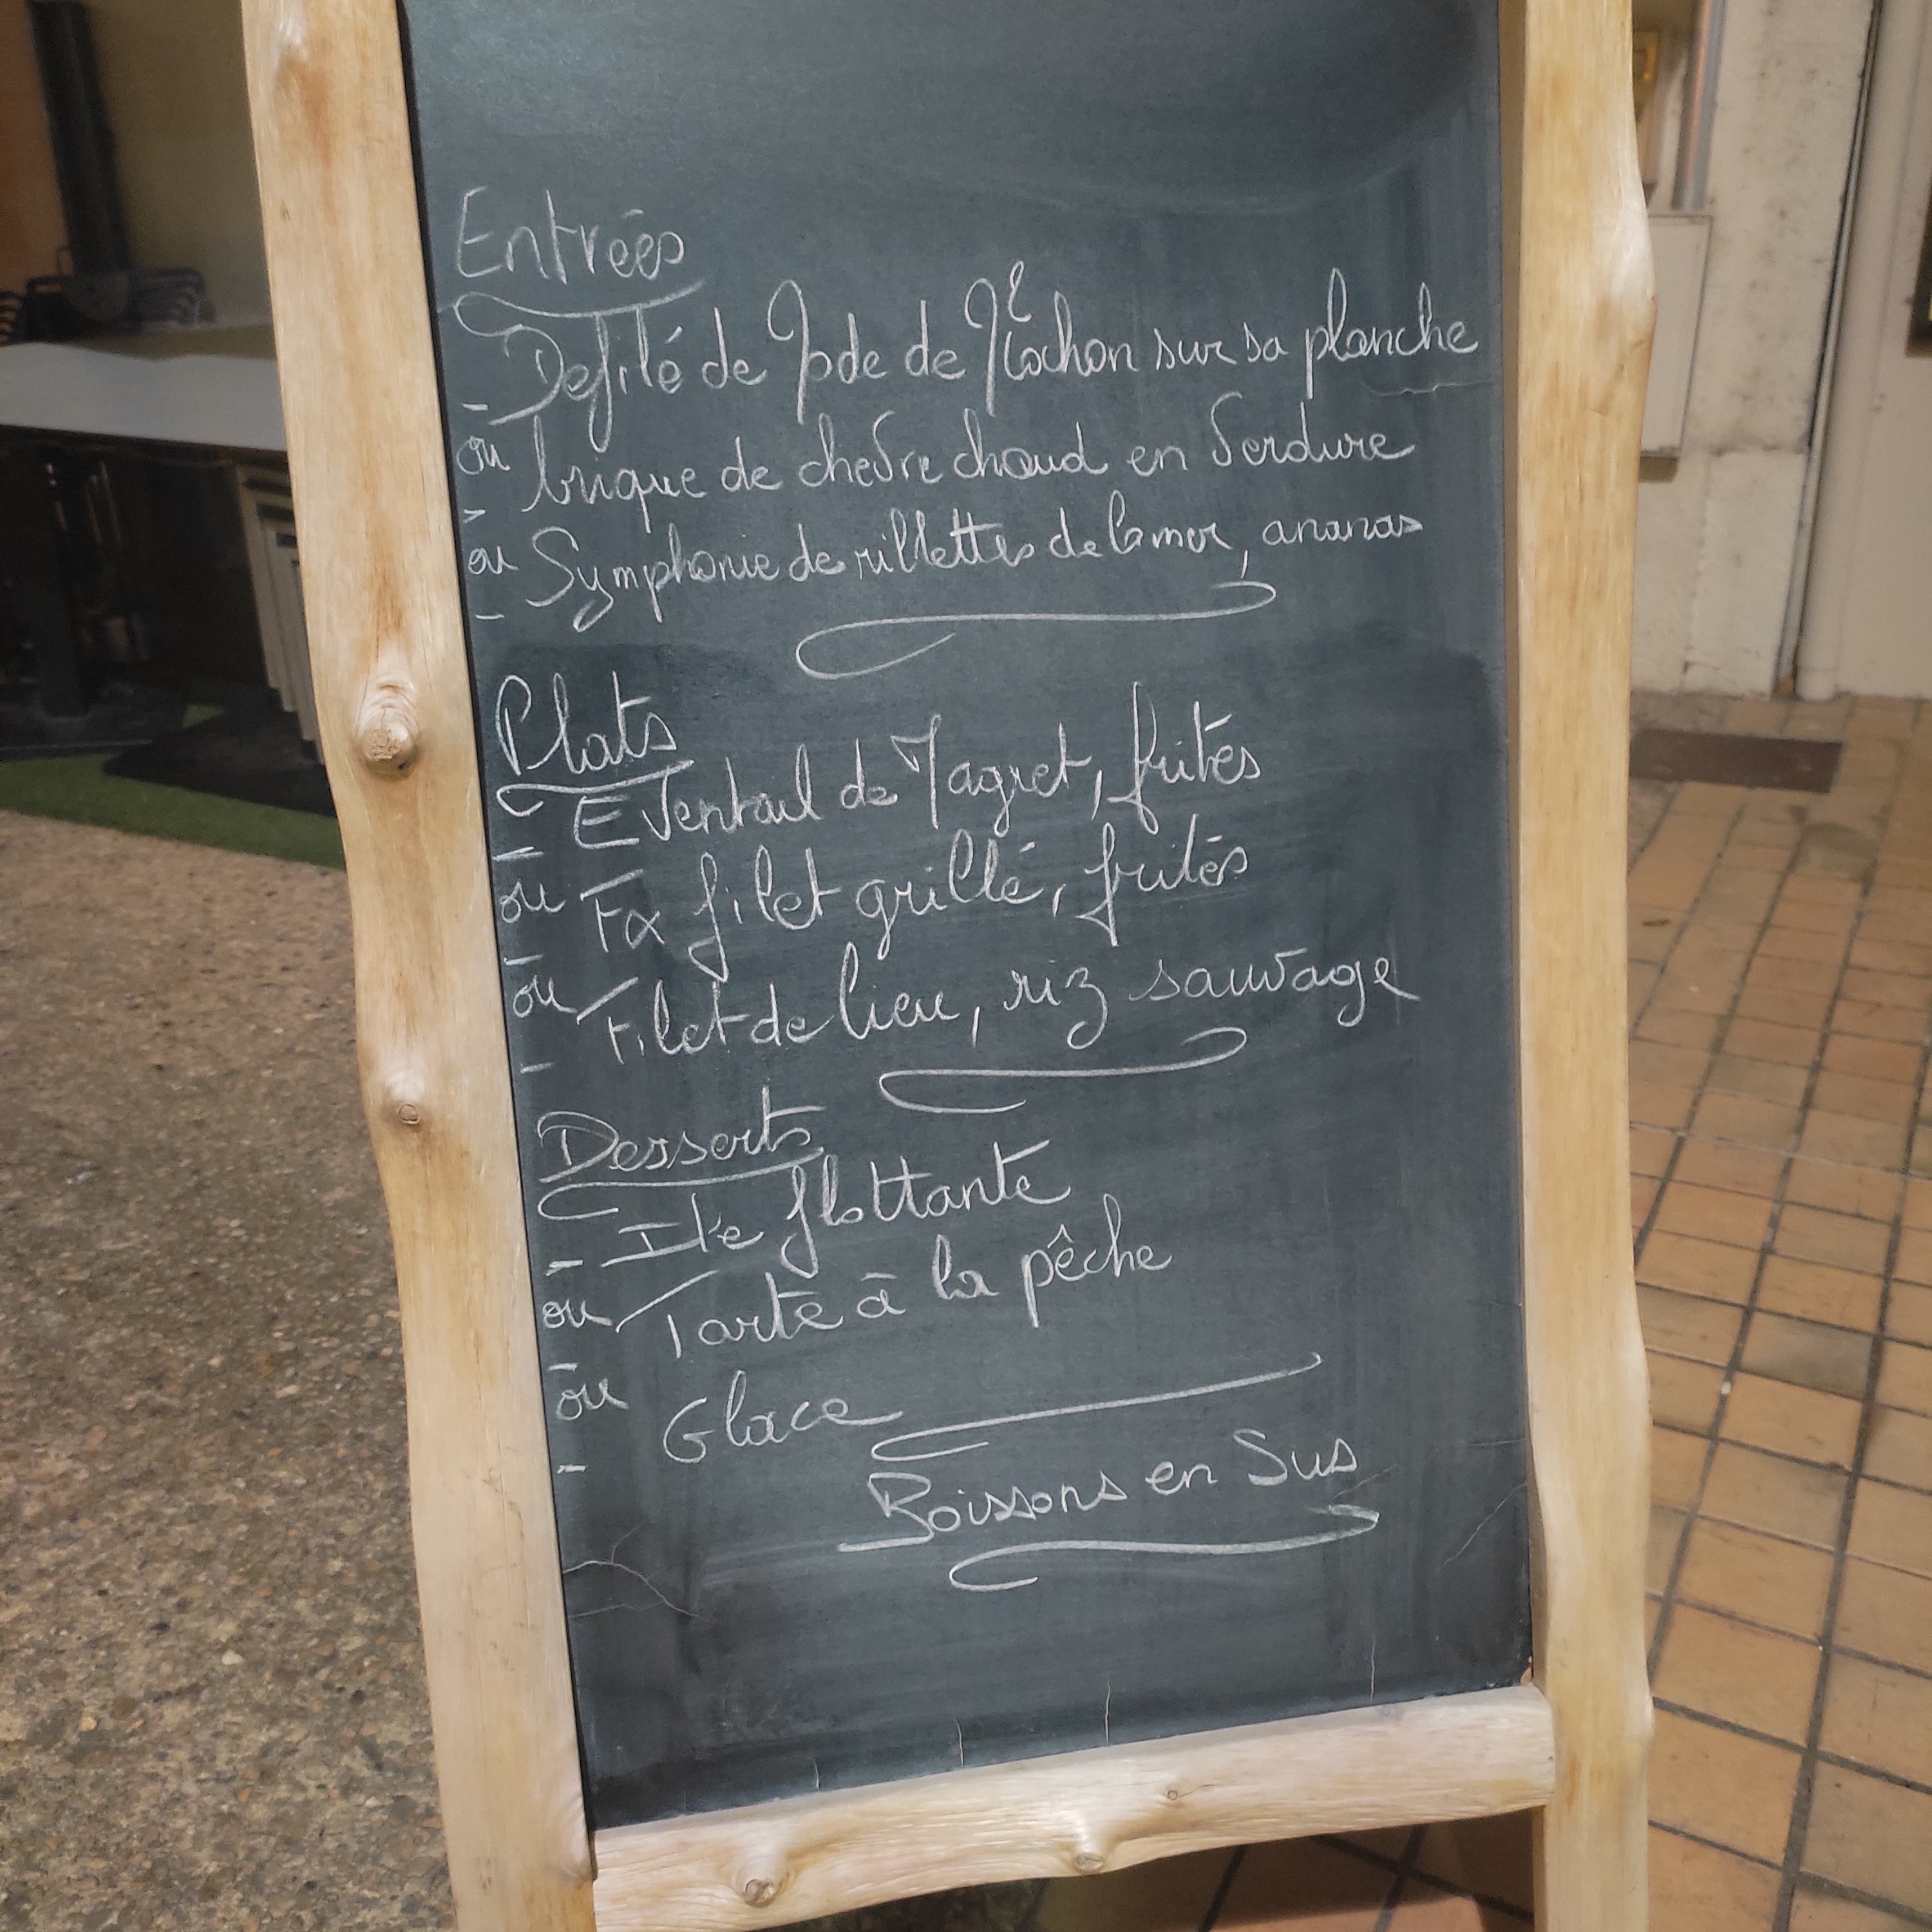 Entrées
- Defilé de Mode de Mr Cochon sur sa planche
ou
- brique de chèvre chaud en Verdure
ou
- Symphonie de rillettes de la mer, ananas
Plats
- Eventail de Magret, frites
ou
- Fx filet grillé, frites
ou
- Filet de lieu, riz sauvage
Desserts
- Ile flottante
ou
- Tarte à la pêche
ou
- Glace
Boissons en Sus